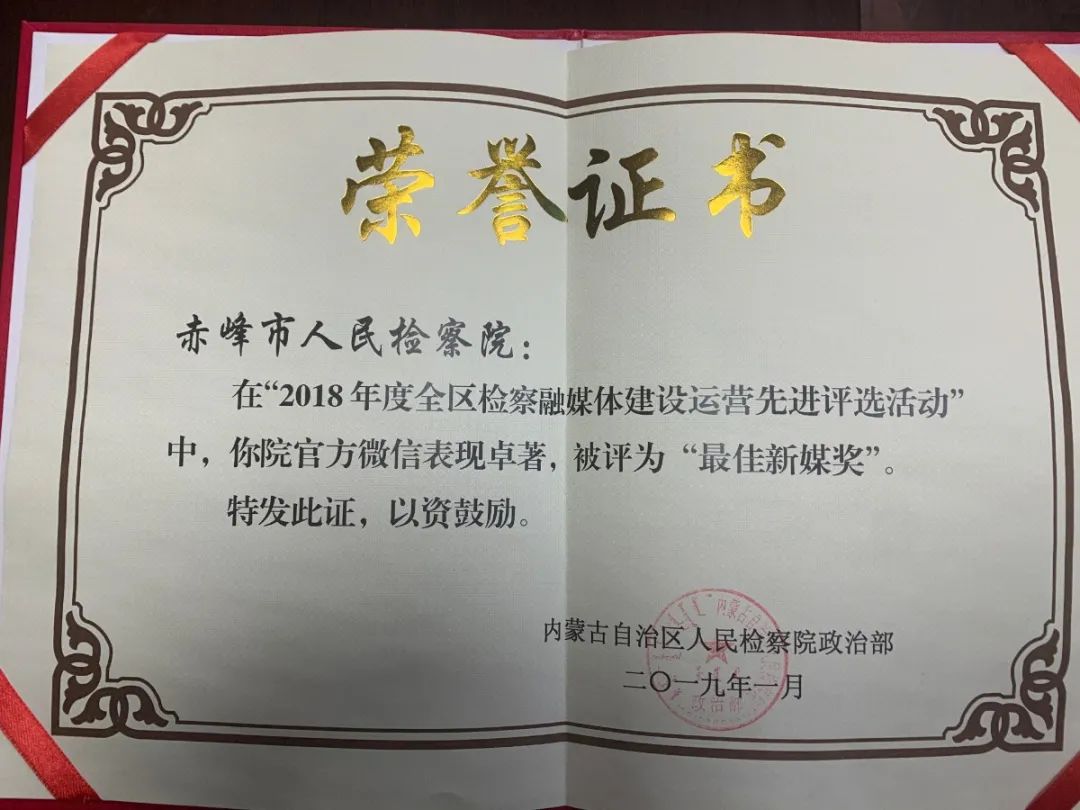 荣誉证书
赤峰市人民检察院：
在“2018年度全区检察融媒体建设运营先进评选活动”
中，你院官方微信表现卓著，被评为“最佳新媒奖”。
特发此证，以资鼓励。
内蒙古自治区人民检察院政治部
二〇一九年一月
政治部